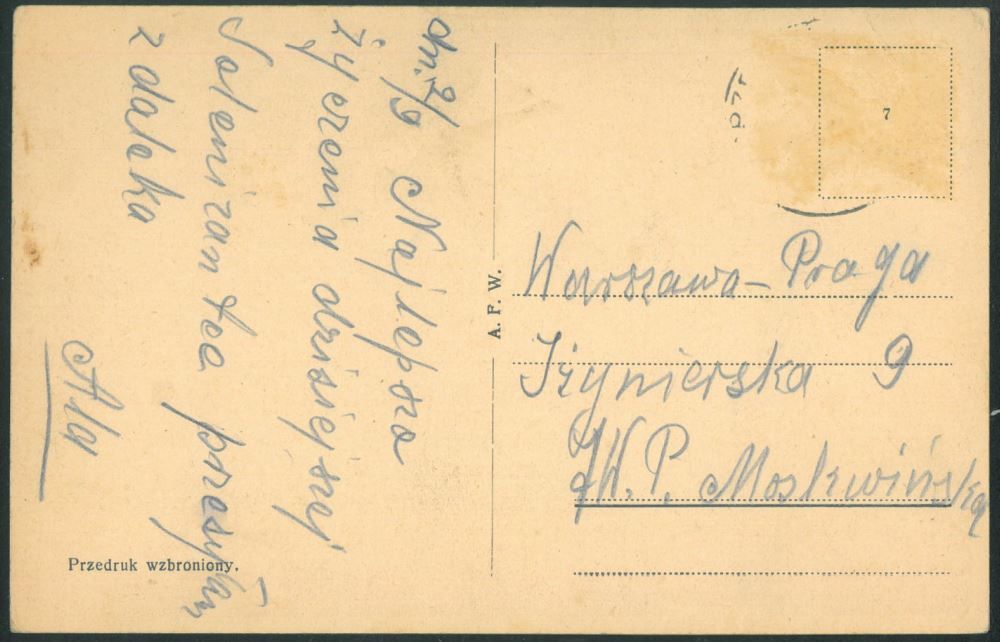 dn. 2/9 Najlepsze
życzenia dzisiejszej
Solenizantce przesyłam
z daleka
Ala
Przedruk wzbroniony.
A. F. W.
7
Warszawa-Praga
Iżynierska 9
J.W.P. Moskwińska